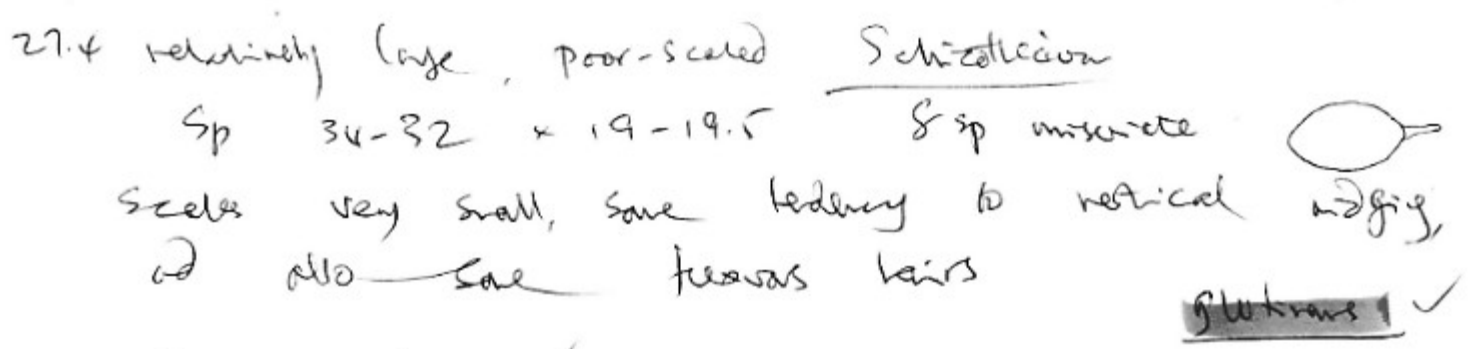 27.4 relatively large, poor-scaled Schizothecium
Sp 34-32 × 19-19.5 8 sp uniseriate
Scales very small, some tendency to vertical ridging,
and also some flexuous hairs
glutinans ✓